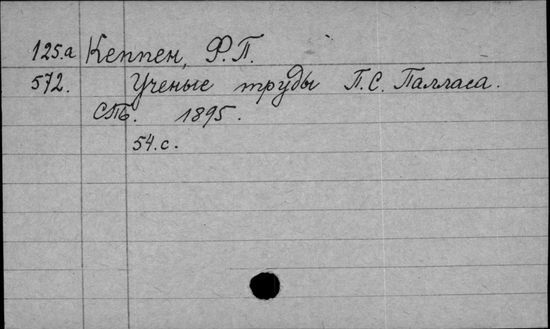 125.а Кеппен, Ф.П.
572. Ученые труды П.С. Палласа.
СПб. 1895.
54.с.